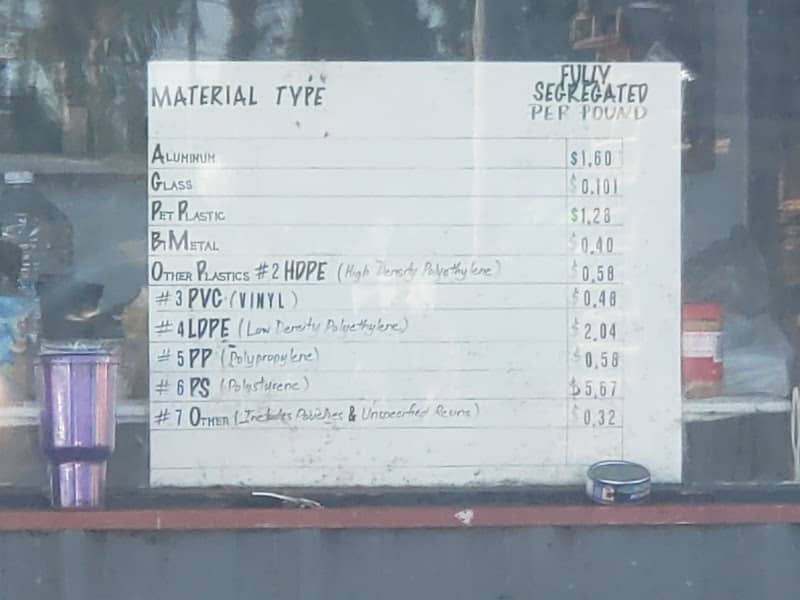 MATERIAL TYPE
FULLY
SEGREGATED
PER POUND
ALUMINUM $1.60
GLASS $0.101
PET PLASTIC $1.28
BI METAL $0.40
OTHER PLASTICS #2 HDPE (High Density Polyethylene) $0.58
#3 PVC (VINYL) $0.48
#4 LDPE (Low Density Polyethylene) $2.04
#5 PP (Polypropylene) $0.58
#6 PS (Polystyrene) $5.67
#7 OTHER (Includes Pouches & Unspecified Resins) $0.32